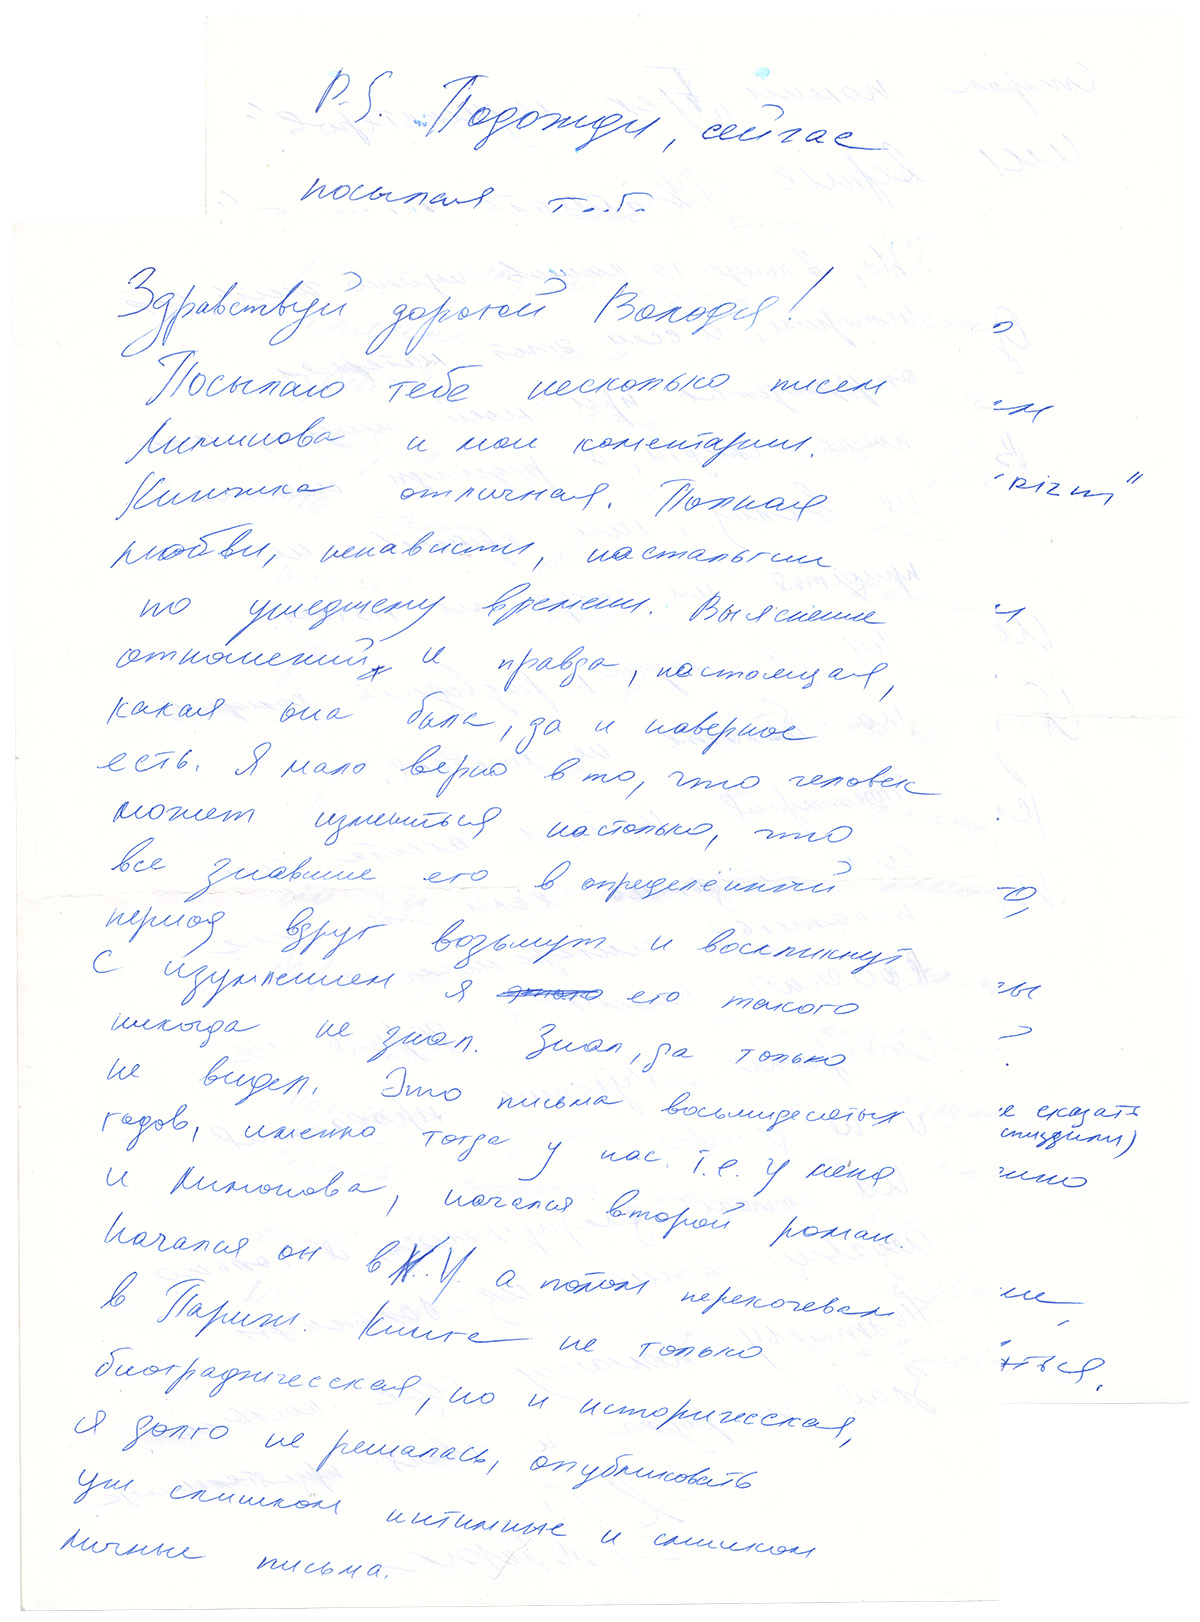 P.S. Подожди, сейчас
посылая
Здравствуй дорогой Володя!
Посылаю тебе несколько писем
Лимонова и мои коментарии.
Книжка отличная. Полная
любви, ненависти, настальгии
по ушедшему времени. Выяснение
отношений и правда, настоящая,
какая она была, да и наверное
есть. Я мало верю в то, что человек
может измениться настолько, что
все знавшие его в определённый
период вдруг возьмут и воскликнут
с изумлением я его такого
никогда не знал. Знал, да только
не видел. Это письма восьмидесятых
годов, именно тогда у нас. т.е. у меня
и Лимонова, начался второй роман.
Начался он в Н.У. а потом перекочевал
в Париж. Книга не только
биографическая, но и историческая,
я долго не решалась, опубликовать
уж слишком интимные и слишком
личные письма.
ем
"
е сказать
спиздили)
ться.